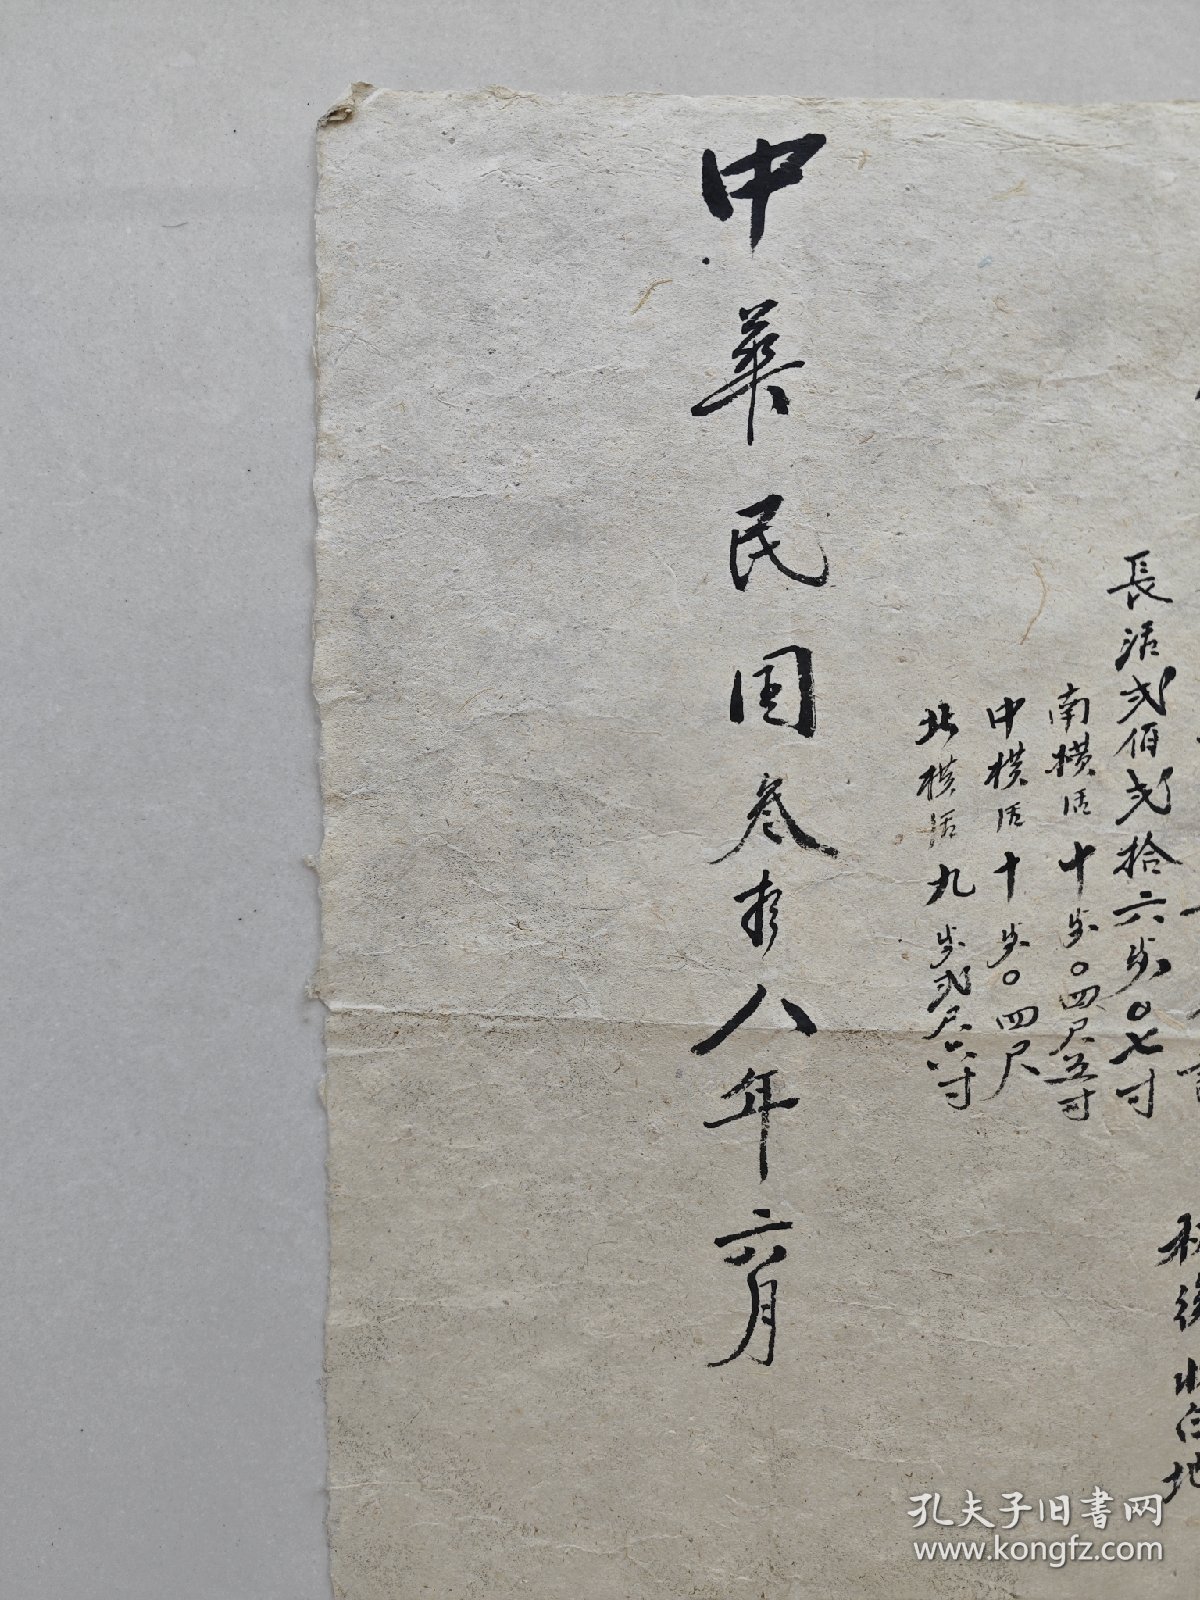 長活弍佰弍拾六步〇七寸
南横活十步〇四尺五寸
中横活十步〇四尺
北横活九步弍尺六寸
中華民国叁拾八年六月
孔夫子旧书网
www.kongfz.com